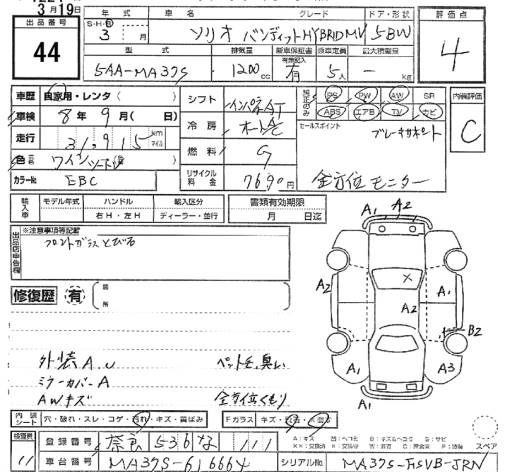 3月19日
出品番号
44
年式 車名 グレード ドア・形状 評価点
S・H・R 3 月 ソリオ バンディット HYBRID MV 5BW 4
型式 排気量 新車保証書 乗車定員 最大積載量
5AA-MA37S 1200cc 有 5人 - kg
車歴 自家用・レンタ( ) シフト インパネAT
PS PW AW SR
ABS エアB TV ナビ
内装評価 C
車検 8年9月( 日) 冷房 オートAC
セールスポイント
ブレーキサポート
走行 31,915 km マイル 燃料 G
色 ワインソート
全方位モニター
カラーNo EBC リサイクル料金 7690円
輸入車 モデル年式 ハンドル 輸入区分 書類有効期限
右H・左H ディーラー・並行 月 日迄
出品店申告欄 ※注意事項等記載
フロントガラスとびる
修復歴 有 箇所
A1 A2
A1
A2 A1 A2 A1
B2
A1 A3
A1
外装A.U ペット毛、臭い
ミラーカバーA
AWキズ 全方位くもり
内装シート 穴・破れ・スレ・コゲ・汚れ・キズ・黄ばみ Fガラス キズ・
スペア
検査員 11 登録番号 奈良 536 な 111
車台番号 MA37S-616664 シリアルNo MA37S-FISVB-JRN